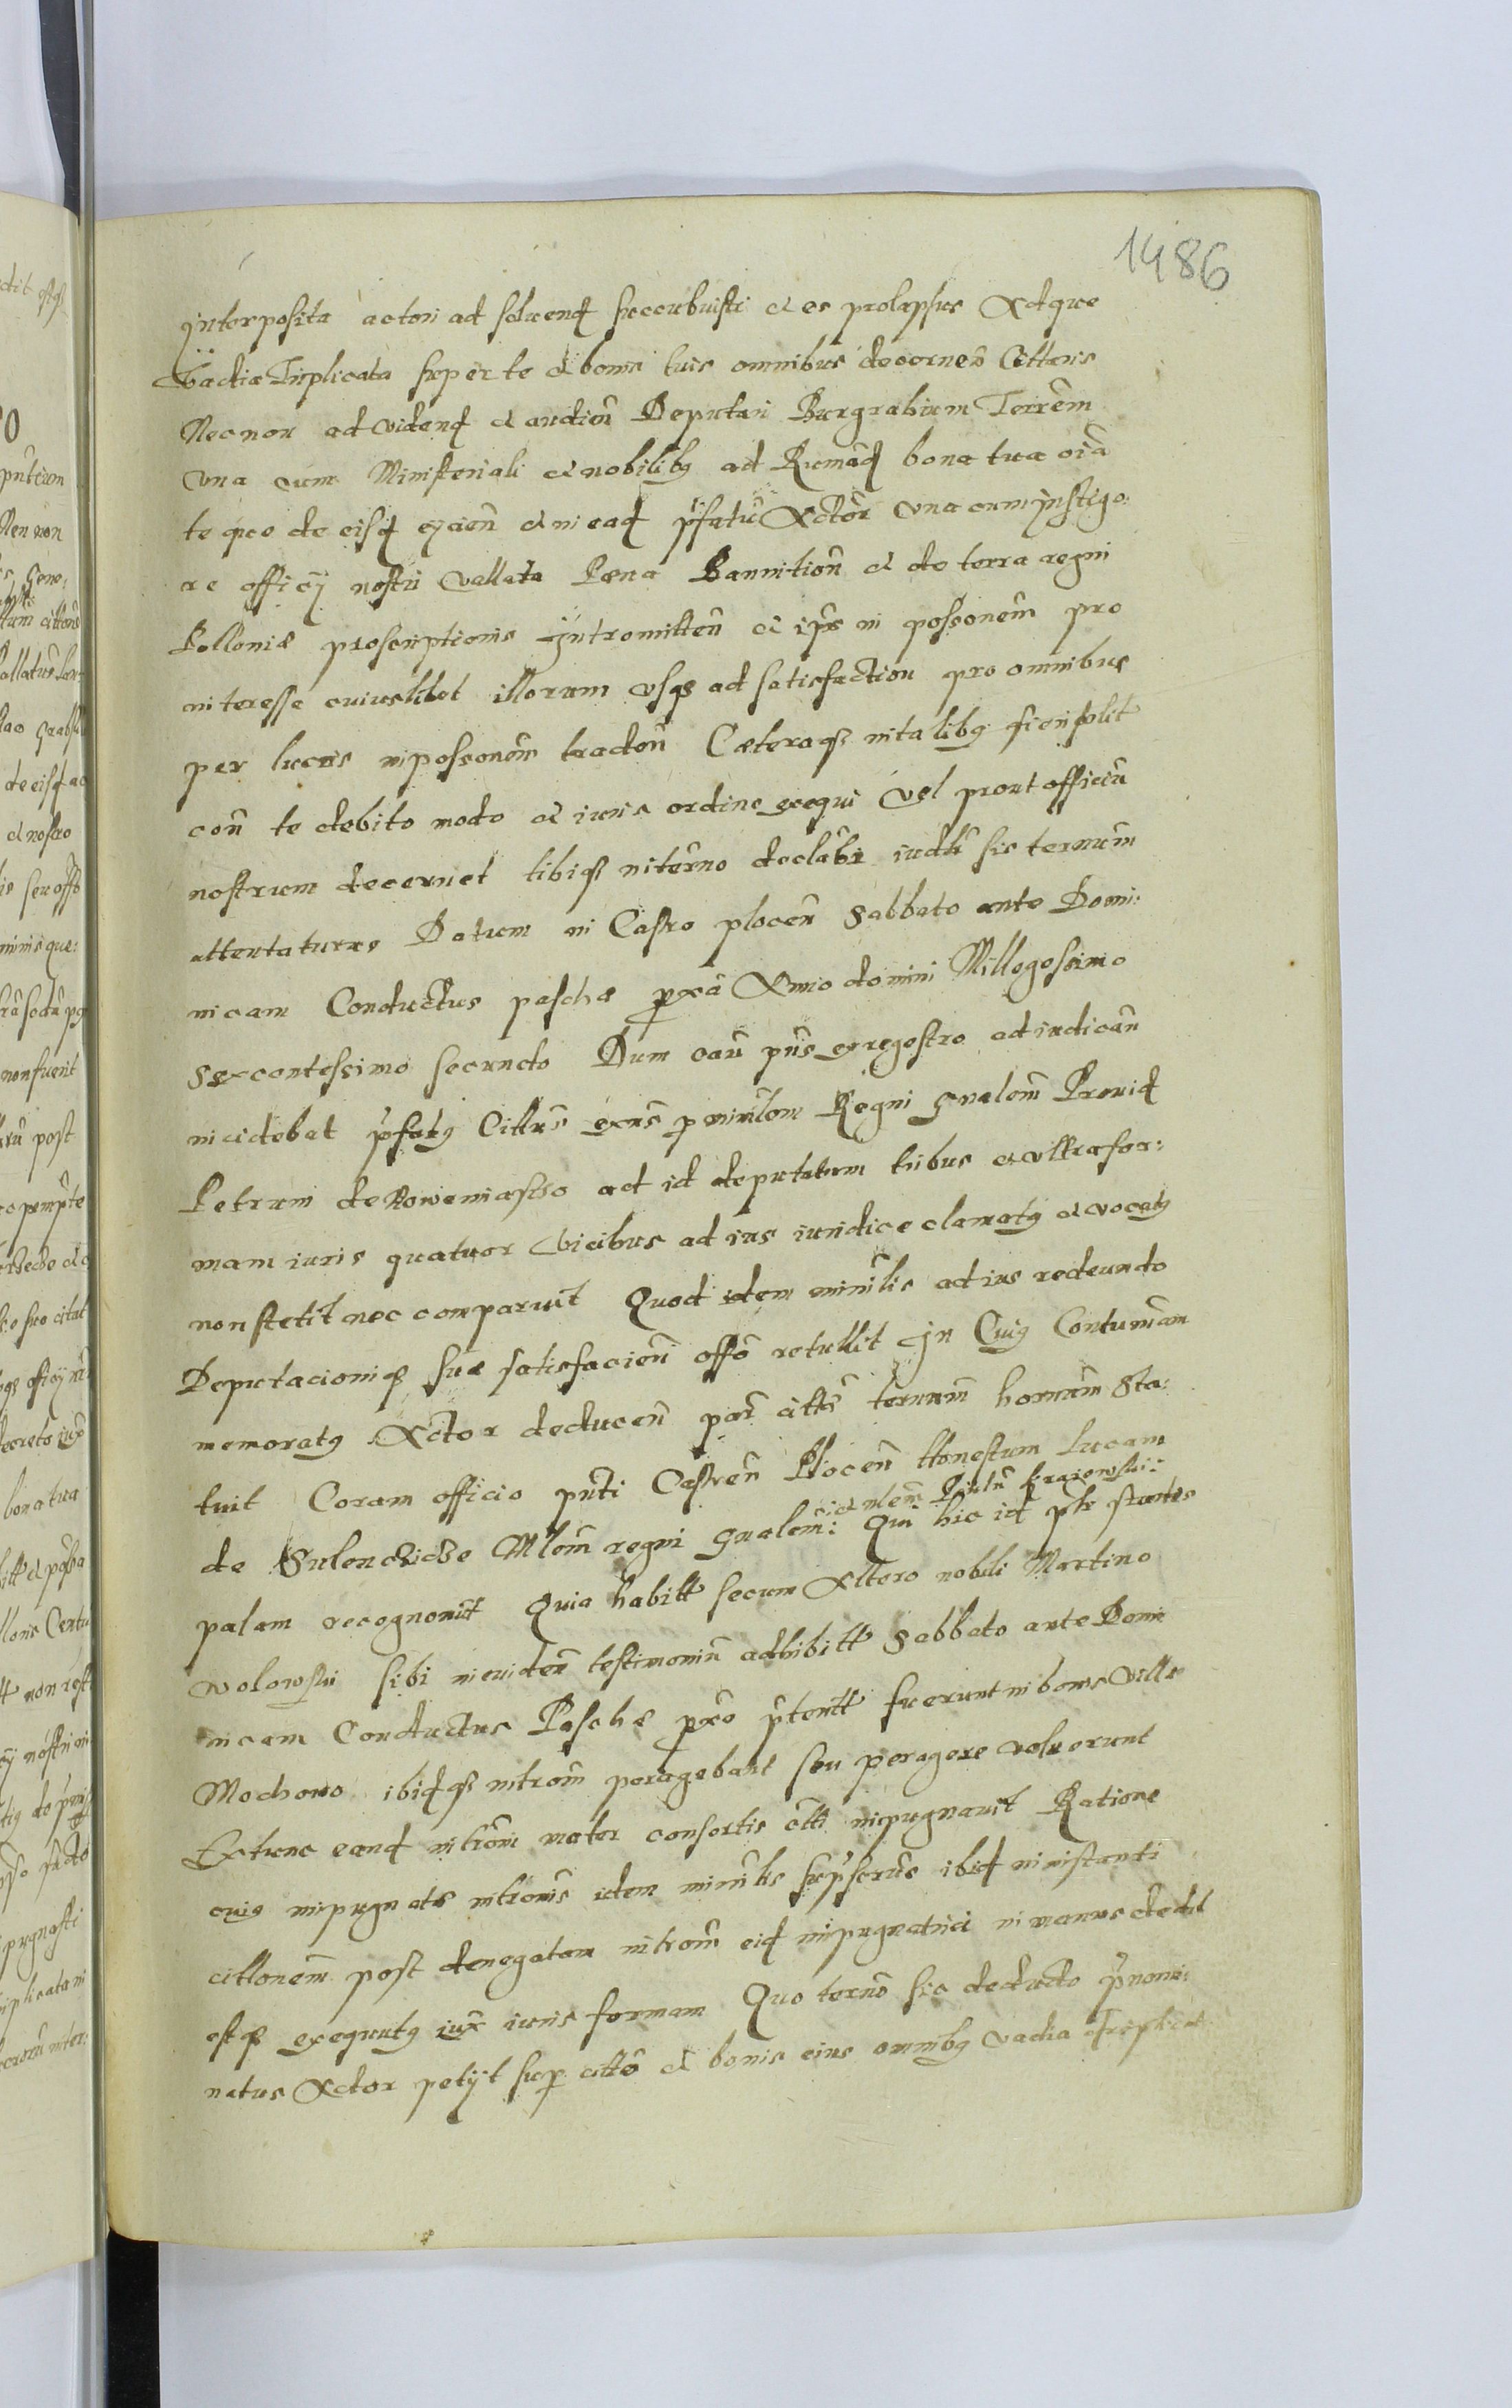 1486
Interposita actori ad soluend succubuisti et es prolapsus Adque
Vadia Triplicata super te et bonis tuis omnibus decerneñ Cittaris
Necnon ad vidend et audieñ Deputari Burgrabium Terrēm
vna cum Ministeriali et nobilibꝯ ad Rumād bona tua oīa
te qꝫ de eisd eycieñ et in ead pfatū Actōr vna cum instigo:
re officij nostri vallata Pæna Bannitioñ et de terra regni
Polloniæ proscriptionis Intromitteñ et ips in possonēm pro
interesse cuiuslibet illorum vsqꝫ ad satisfaction pro omnibus
per lucris in possonēm tradeñ Cæteraqꝫ in talibꝯ fieri solit
coñ te debito modo et iuris ordine exequi vel prout officiū
nostrum decernet tibiqꝫ in termo declābi iudlr sis ternūm
attentaturus Datum in Castro ploceñ Sabbato ante Domi:
nicam Conductus paschæ pxā Anno domini Millegessimo
Sexcentessimo secundo Dum caū pūs ex regestro ad iudicāñ
incidebat pfatꝯ Cittūs exūs p minrlem Regni gnalem Prouid
Petrum de Nowemiastho ad id deputatum tribus et vltra for:
mam iuris quatuor vicibus ad ius iuridice clamatꝯ et vocatꝯ
non stetit nec comparuit Quod idem minrlis ad ius redeundo
Deputacioniqꝫ suæ satisfacieñ offo retullit In Cuiꝯ Contumām
memoratꝯ Actor deduceñ par citts ternūm hornūm Sta:
tuit Coram officio pnti Castreñ Ploceñ Honestum Lucam
et nlem
de Mlem regni gnalem: Qui hic id pls stantes
palam recognouit Quia habitt secum Altero nobili Martino
wolowski sibi in euideñ testimoniū adhibitt Sabbato ante Domi
nicam Conductus Paschæ pxo ptentt fuerunt in bonis Villæ
Mochowo ibidqꝫ introm peragebant seu peragere voluerunt
Extunc eand introm mater consortis citti inpugnauit Ratione
cuiꝯ inpugnatæ intromis idem minrlis supscrūs ibid in instanti
cittonem post denegatam introm eid inpugnatrici in manus dedit
estqꝫ exequutꝯ iux iuris formam Quo termo sic deducto pnomi:
natus Actor petijt sup citto et bonis eius omnibꝯ vadia Triplicat